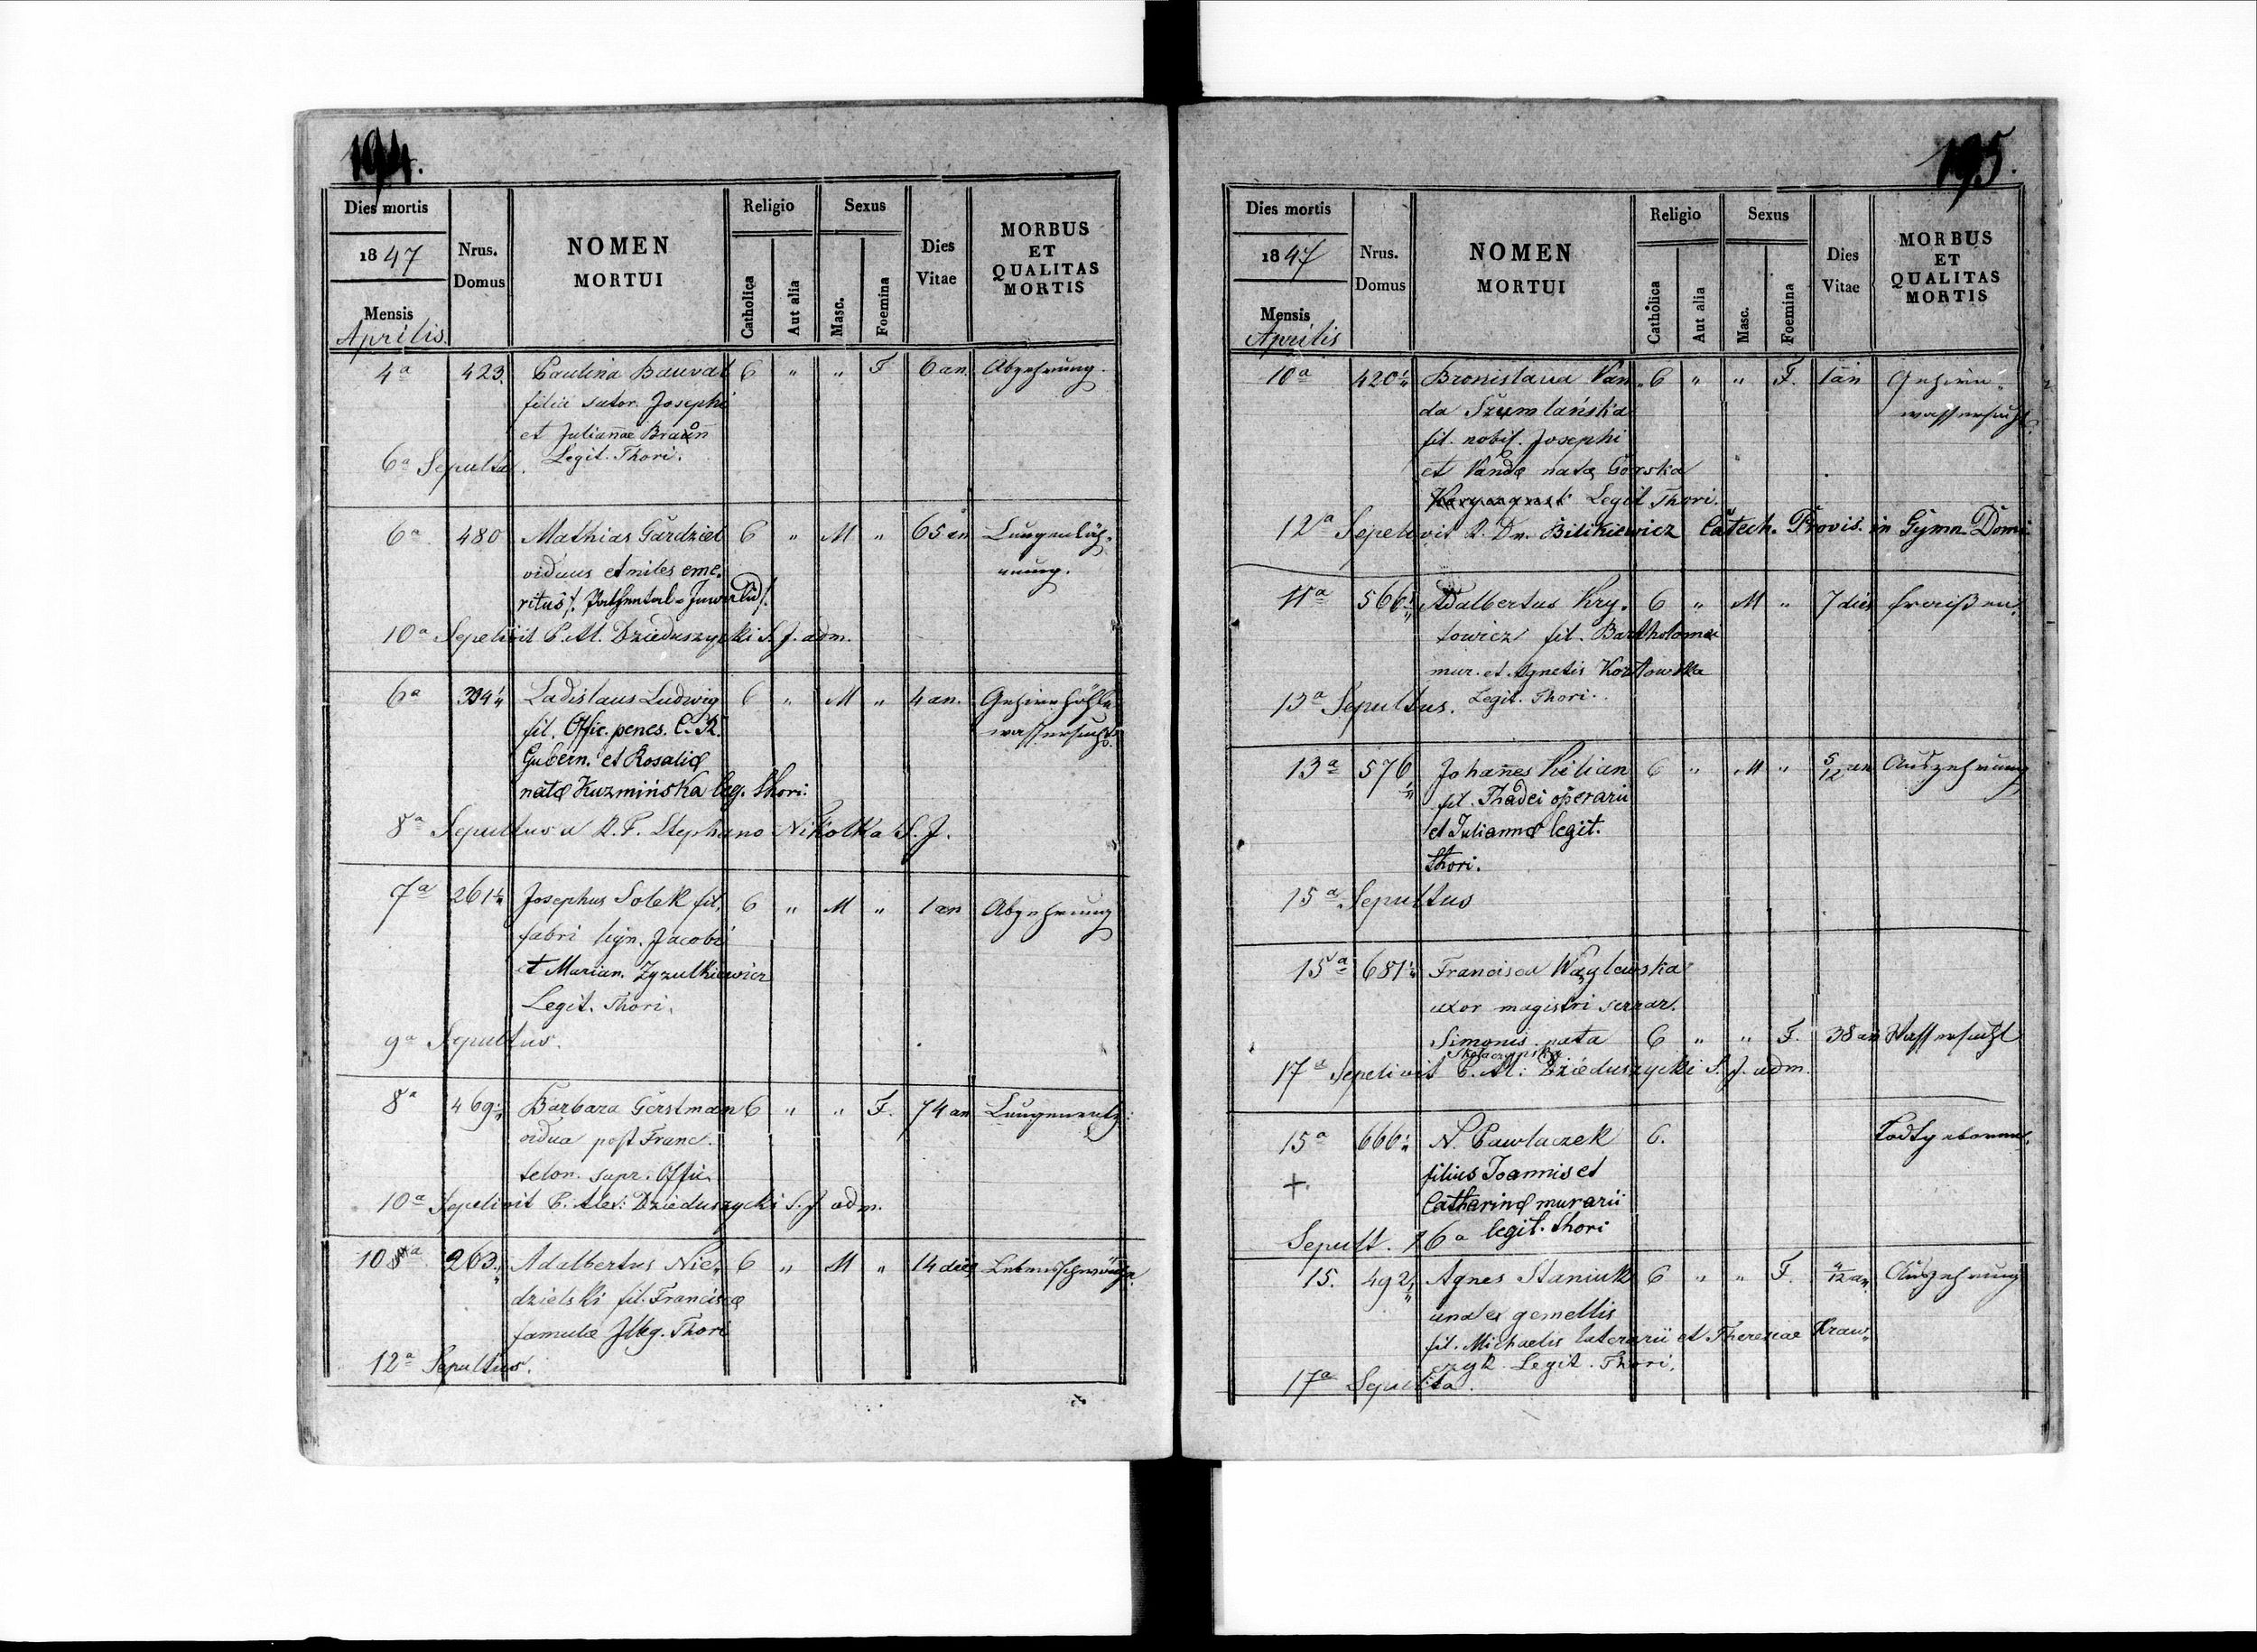 194.
Dies mortis
1847
Mensis
Aprilis.
Nrus.
Domus
NOMEN
MORTUI
Religio
Catholica
Aut alia
Sexus
Masc.
Foemina
Dies
Vitae
MORBUS
ET
QUALITAS
MORTIS
4a 423. Paulina Bauval 6 " " F 6 an Abzehrung.
filia sutor. Josephi
et Julianae Braun
Legit. Thori.
6a Sepulta.
6a 480 Mathias Gardziel 6 " M " 65 an Lungenläh-
viduus et miles eme- mung.
ritus /. Pathental-Invalid /.
10a Sepelivit P. Al. Dzieduszycki S. J. adm.
6a 394 1/4 Ladislaus Ludwig 6 " M " 4 an. Gehirnhöhle
fil. Offic. penes. C. R. wassersucht.
Gubern. et Rosaliae
natae Kuzmińska leg. thori.
8a Sepultus a R. P. Stephano Nikolka S. J.
7a 261 1/4 Josephus Solek fil. 6 " M " 1 an Abzehrung
fabri lign. Jacobi
et Marian. Zyzulkiewicz
Legit. Thori.
9a Sepultus.
8a 469 1/4 Barbara Gerstman 6 " " F. 74 an Lungenentz:
vidua post Franc.
telon. supr. Offic.
10a Sepelivit P. Alex: Dzieduszycki S. J adm.
10a 263. Adalbertus Nie- 6 " M " 14 dies Lebensschwäche.
dzielski fil. Franciscae
famulae Illeg. Thori
12a Sepultus.
195.
Dies mortis
1847
Mensis
Aprilis
Nrus.
Domus
NOMEN
MORTUI
Religio
Catholica
Aut alia
Sexus
Masc.
Foemina
Dies
Vitae
MORBUS
ET
QUALITAS
MORTIS
10a 420 1/4 Bronislaua Van- 6 " " F. 1 an Gehirn-
da Szumlańska wassersucht.
fil. nobil. Josephi
et Vandae natae Górska
Legit Thori.
12a Sepelivit R. Dn. Bilikiewicz Catech. Provis. in Gymn. Domi
11a 566 1/4 Adalbertus Kry- 6 " M " 7 dies Fraißen.
towicz fil. Bartholomaei
mur. et Agnetis Kozłowska
Legit. Thori.
13a Sepultus.
13a 576 1/4 Johanes Kilian 6 " M " 5/12 an Auszehrung
fil. Thadei operarii
et Juliannae legit.
thori.
15a Sepultus
15a 681 1/4 Francisca Wazylewska
uxor magistri serrar.
Simonis nata 6 " " F. 38 an Wassersucht
17a Sepelivit P. Al: Dzieduszycki S. J. adm.
15a 666 1/4 N. Pawlaczek 6. Todtgeboren.
+ filius Joannis et
Catharinae murarii
legit. thori
Sepult. 16a
15. 492 1/4 Agnes Staniuk 6 " " F. 4/12 an. Auszehrung
una ex gemellis
fil. Michaelis laterarii et Theresiae Kraw-
czyk. Legit. Thori.
17a Sepulta.